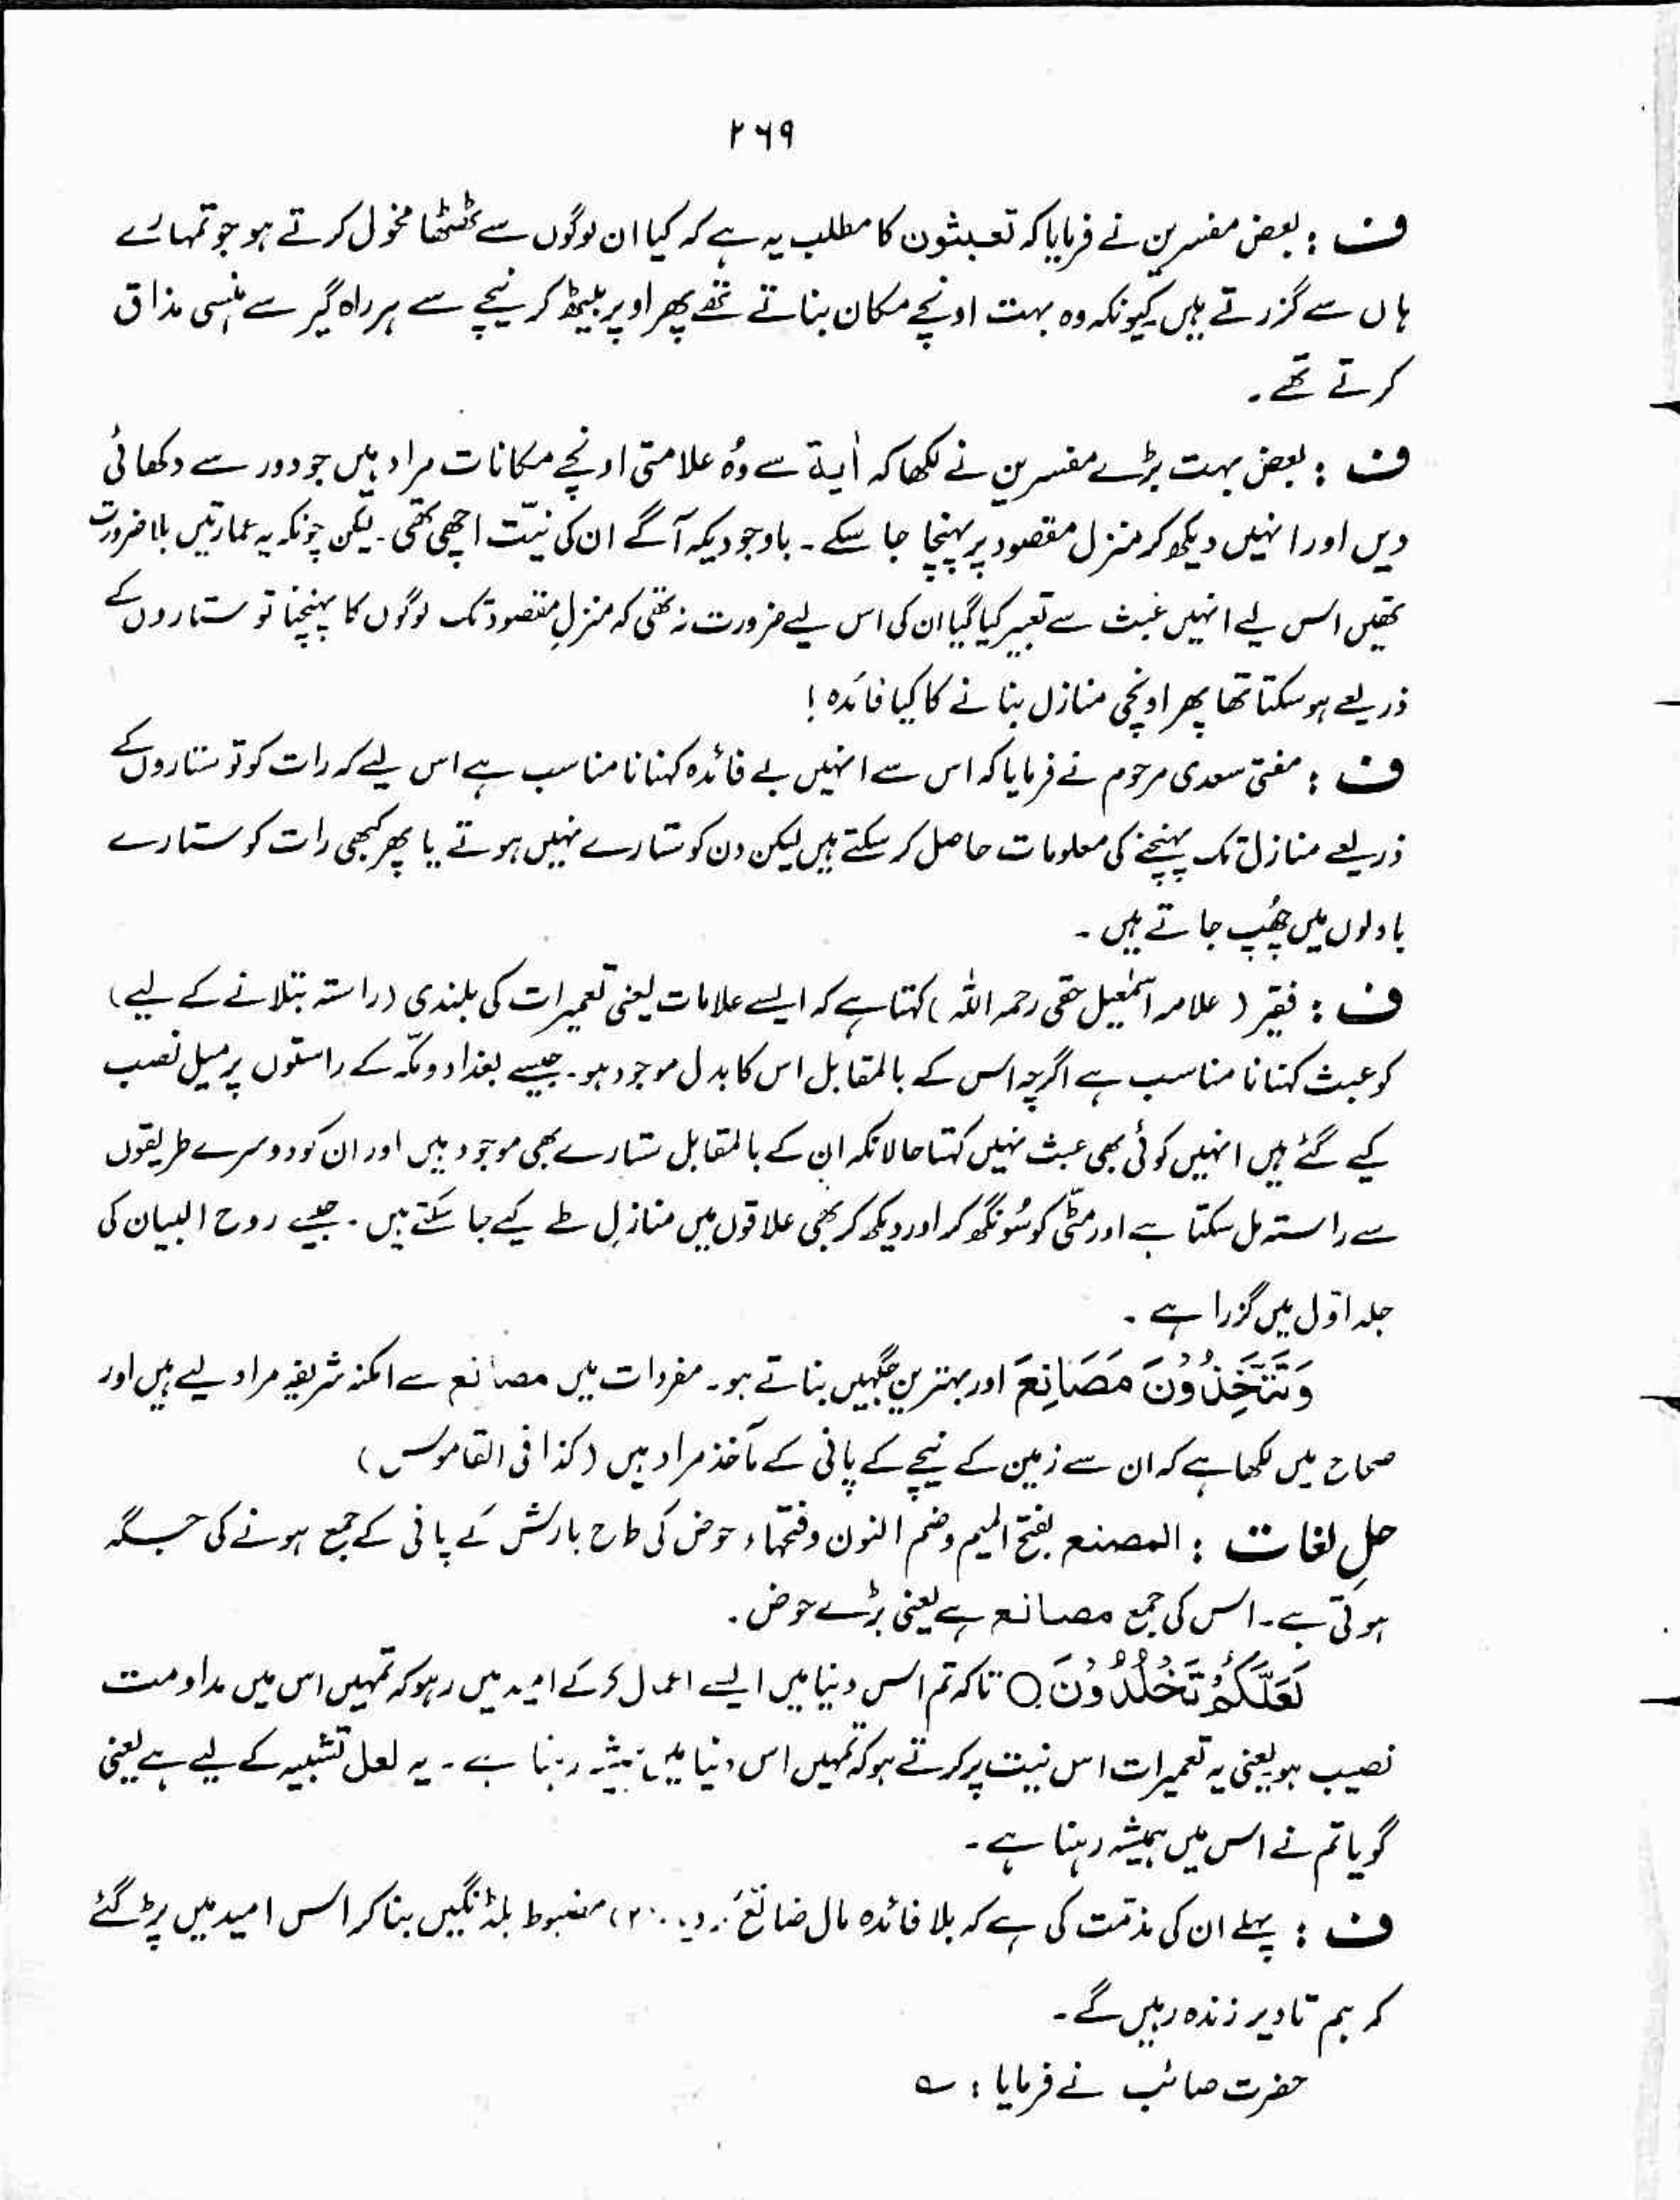 ۲۶۹
ف : بعض مفسرین نے فرمایا کہ تعبثون کا مطلب یہ ہے کہ کیا ان لوگوں سے ٹھٹھا مخول کرتے ہو جو تمہارے
ہاں سے گزرتے ہیں کیونکہ وہ بہت اونچے مکان بناتے تھے پھر اوپر بیٹھ کر نیچے سے ہر راہ گیر سے ہنسی مذاق
کرتے تھے ۔
ف : بعض بہت بڑے مفسرین نے لکھا کہ اٰیۃ سے وُہ علامتی اونچے مکانات مراد ہیں جو دور سے دکھائی
دیں اور انہیں دیکھ کر منزل مقصود پر پہنچا جا سکے ۔ باوجودیکہ آگے ان کی نیّت اچھی تھی ۔ لیکن چونکہ یہ عمارتیں بلا ضرورت
تھیں اس لیے انہیں عبث سے تعبیر کیا گیا ان کی اس لیے ضرورت نہ تھی کہ منزلِ مقصود تک لوگوں کا پہنچنا تو ستاروں کے
ذریعے ہو سکتا تھا پھر اونچی منازل بنانے کا کیا فائدہ !
ف : مفتی سعدی مرحوم نے فرمایا کہ اس سے انہیں بے فائدہ کہنا نامناسب ہے اس لیے کہ رات کو تو ستاروں کے
ذریعے منازل تک پہنچنے کی معلومات حاصل کر سکتے ہیں لیکن دن کو ستارے نہیں ہوتے یا پھر کبھی رات کو ستارے
بادلوں میں چھُپ جاتے ہیں ۔
ف : فقیر ( علامہ اسمٰعیل حقی رحمہ اللہ ) کہتا ہے کہ ایسے علامات یعنی تعمیرات کی بلندی ( راستہ بتلانے کے لیے )
کو عبث کہنا نامناسب ہے اگرچہ اس کے بالمقابل اس کا بدل موجود ہو ۔ جیسے بغداد و مکّہ کے راستوں پر میل نصب
کیے گئے ہیں انہیں کوئی بھی عبث نہیں کہتا حالانکہ ان کے بالمقابل ستارے بھی موجود ہیں اور ان کو دوسرے طریقوں
سے راستہ مل سکتا ہے اور مٹّی کو سُونگھ کر اور دیکھ کر بھی علاقوں میں منازل طے کیے جا سکتے ہیں ۔ جیسے روح البیان کی
جلد اوّل میں گزرا ہے ۔
وَتَتَّخِذُوْنَ مَصَانِعَ اور بہترین جگہیں بناتے ہو ۔ مفردات میں مصانع سے امکنہ شریفہ مراد لیے ہیں اور
صحاح میں لکھا ہے کہ ان سے زمین کے نیچے کے پانی کے مآخذ مراد ہیں ( کذا فی القاموس )
حلِ لغات : المصنع بفتح المیم وضم النون وفتحہا ، حوض کی طرح بارش کے پانی کے جمع ہونے کی جگہ
ہوتی ہے ۔ اس کی جمع مصانع ہے یعنی بڑے حوض ۔
لَعَلَّكُمْ تَخْلُدُوْنَ ○ تاکہ تم اس دنیا میں ایسے اعمال کر کے امید میں رہو کہ تمہیں اس میں مداومت
نصیب ہو یعنی یہ تعمیرات اس نیت پر کرتے ہو کہ تمہیں اس دنیا میں ہمیشہ رہنا ہے ۔ یہ لعل تشبیہ کے لیے ہے یعنی
گویا تم نے اس میں ہمیشہ رہنا ہے ۔
ف : پہلے ان کی مذمّت کی ہے کہ بلا فائدہ مال ضائع مضبوط بلڈنگیں بنا کر اس امید میں پڑ گئے
کہ ہم تا دیر زندہ رہیں گے ۔
حضرت صائب نے فرمایا : ؎